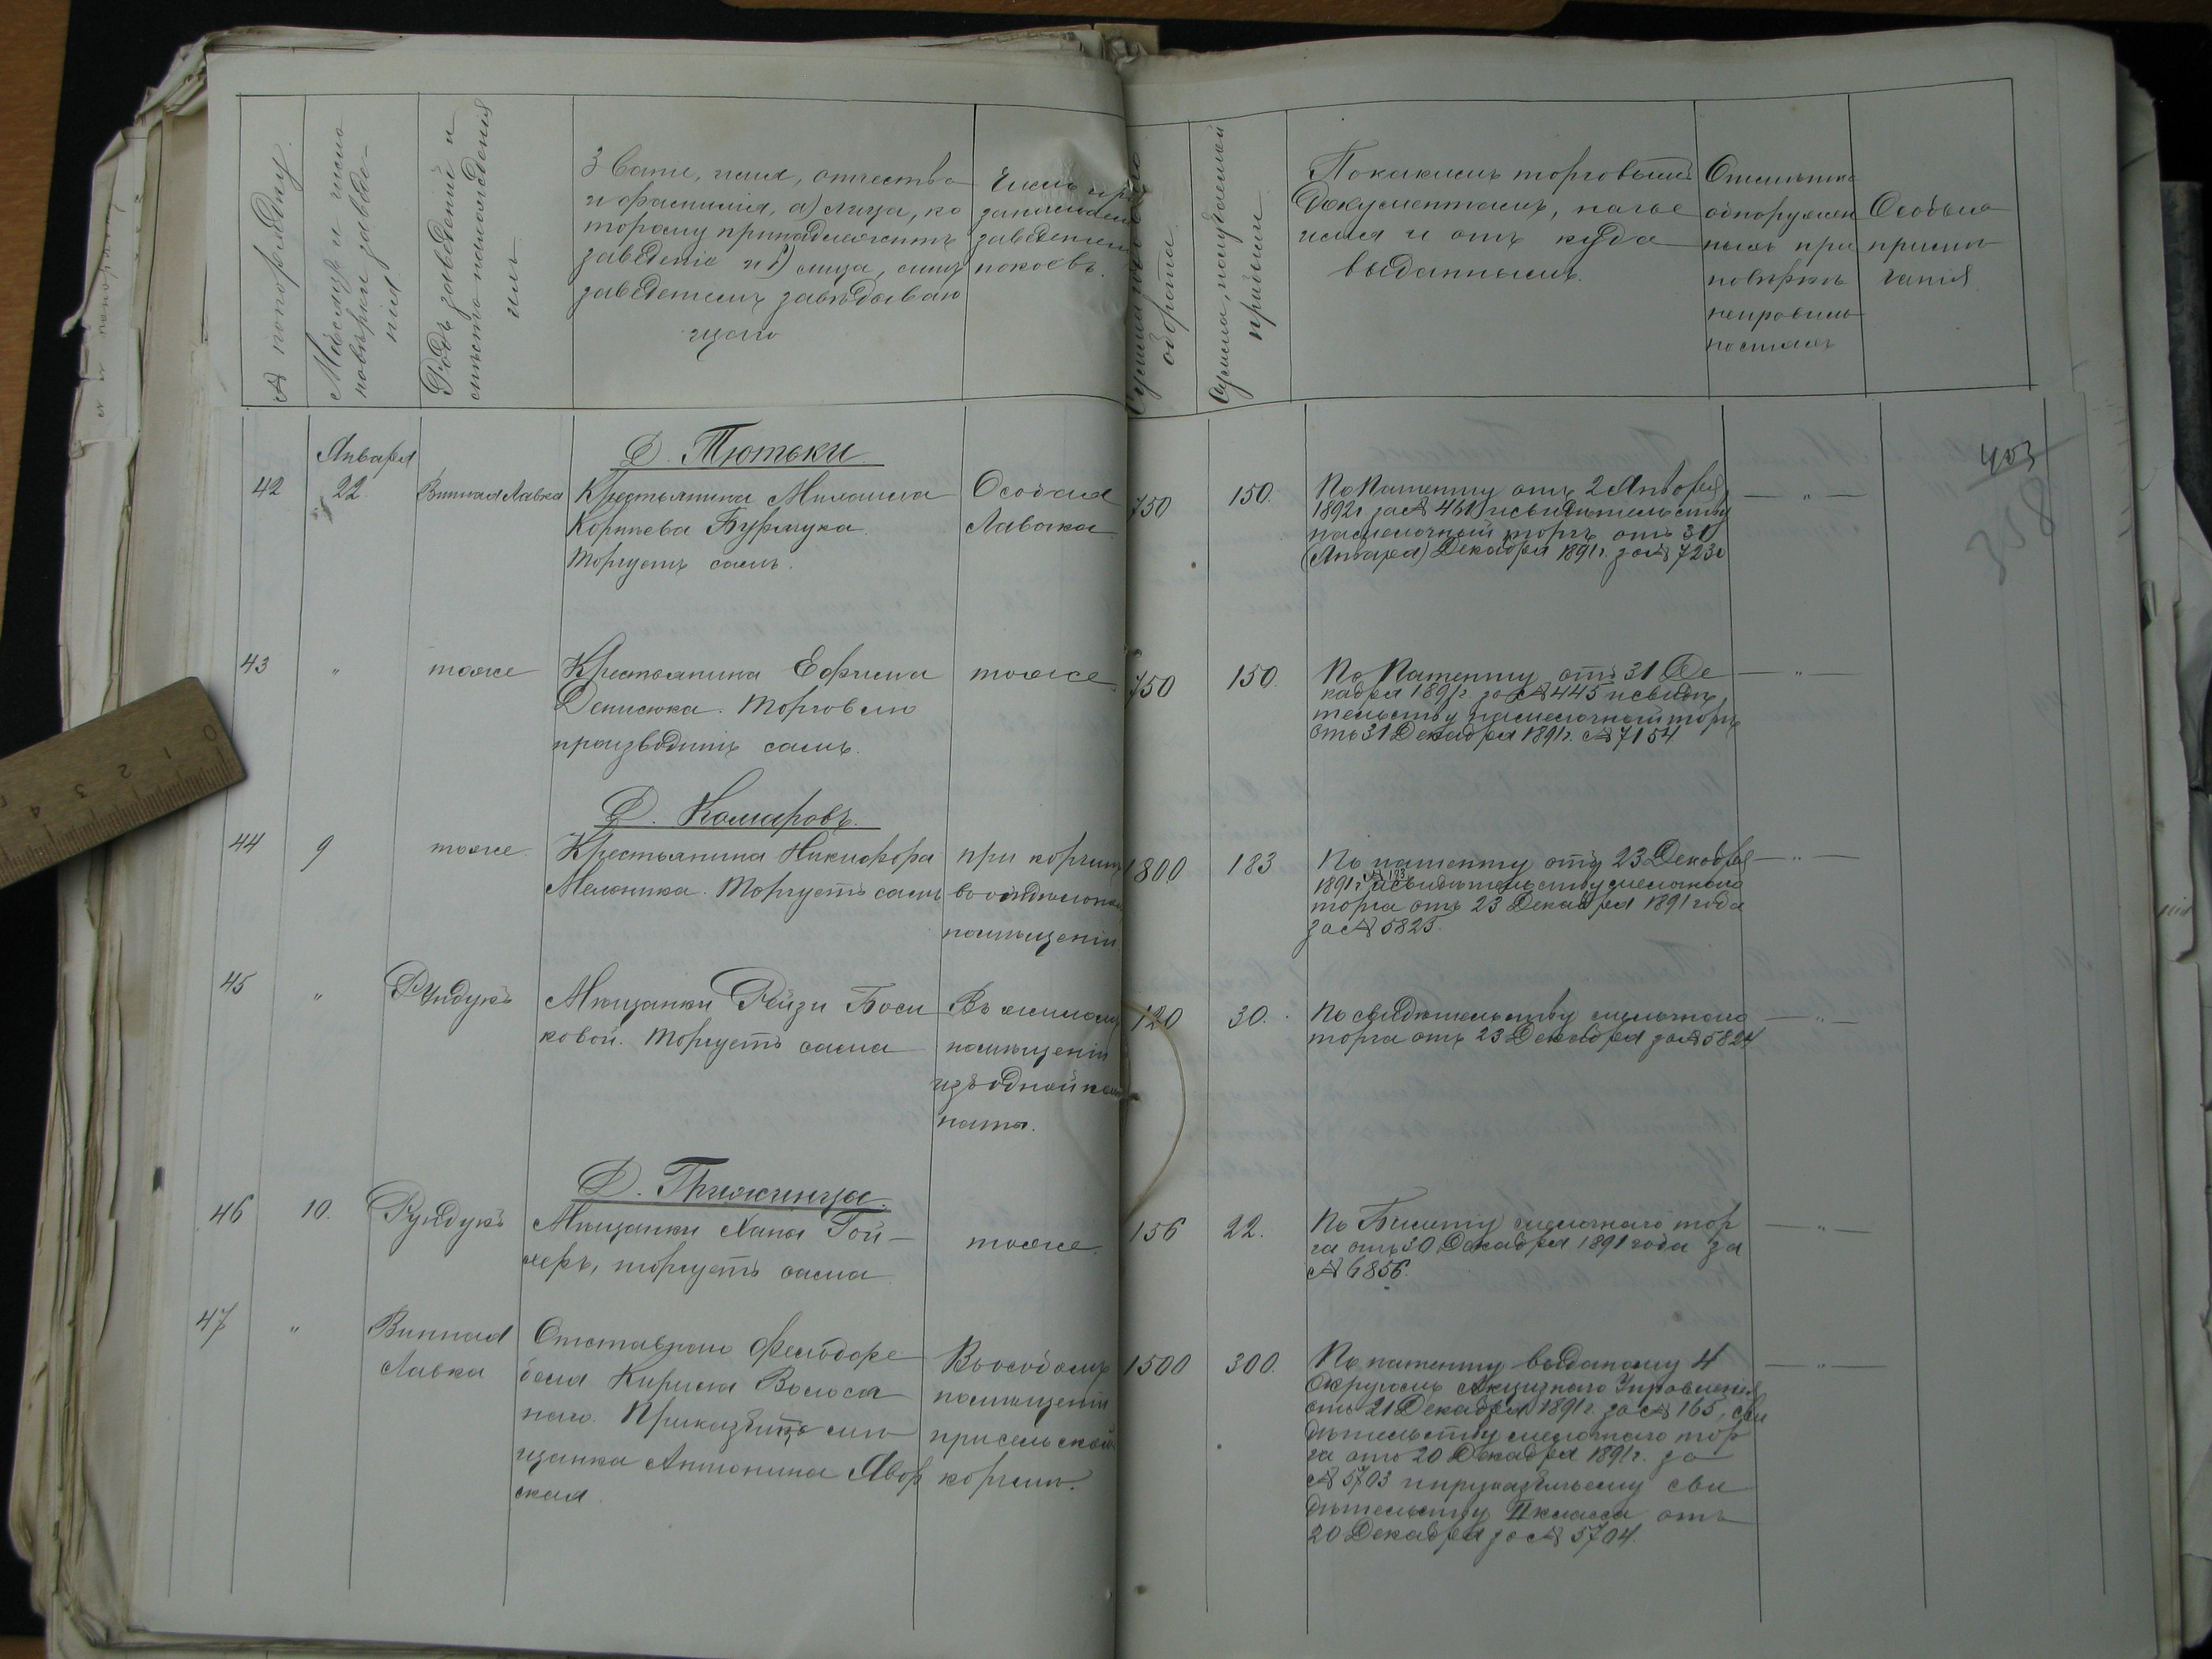 № по порядку.
Мѣсяцъ и число
повѣрки заведе-
нія
Родъ заведеній и
мѣсто нахожденія
ихъ
Званіе, имя, отчество
и фамилія, а) лица, ко
торому принадлежитъ
заведеніе и б) лица, симъ
заведеніемъ завѣдываю
щаго
Число
занимаемыхъ
заведеніемъ
покоевъ.
оборота
Сумма, получаемой
прибыли
По какимъ торговымъ
документамъ, на чье
имя и отъ куда
выданнымъ.
Отмѣтка
обнаружен
ныхъ при
повѣркѣ
неправиль
ностяхъ
Особыя
примѣ
чанія
403
358
Д. Тютьки
42
Января
22.
Винная Лавка
Крестьянина Михаила
Корнѣева Бурчука.
Торгуетъ самъ.
Особая
Лавочка
750
150.
По Патенту отъ 2 Января
1892 г за № 461 и свидѣтельству
на мелочный торгъ отъ 31
(Января) Декабря 1891 г. за № 7230
— „ —
43
„
тоже
Крестьянина Ефима
Денисюка. Торговлю
производитъ самъ.
тоже
750
150.
По Патенту отъ 31 Де
кабря 1891 г. за № 445 и свидѣ
тельству на мелочный торгъ
отъ 31 Декабря 1891 г. № 7154
— „ —
Д. Комаровъ.
44
9
тоже
Крестьянина Никифора
Мельника. Торгуетъ самъ
при корчмѣ
въ отдѣльномъ
помѣщеніи
1800
183
По патенту отъ 23 Декабря
1891 г № 183 и свидѣтельству мелочнаго
торга отъ 23 Декабря 1891 года
за № 5825.
— „ —
45
„
Рундукъ
Мѣщанки Рейзи Боси
ковой. Торгуетъ сама
Въ жиломъ
помѣщеніи
изъ одной ком
наты.
120
30.
По свидѣтельству мелочнаго
торга отъ 23 Декабря за № 5824
— „ —
46
10.
Рундукъ
Мѣщанки Хана Гой-
херъ, торгуетъ сама
тоже.
156
22.
По Билету мелочнаго тор
га отъ 30 Декабря 1891 года за
№ 6856.
— „ —
47
„
Винная
Лавка
Отставнаго Фельдфе
беля Кирила Волоса
наго. Приказчица мѣ
щанка Антонина Явор
ская
Въ особомъ
помѣщеніи
при сельской
корчмѣ.
1500
300.
По патенту выданому 4
Округомъ Акцизнаго Управленія
отъ 21 Декабря 1891 г. за № 165, сви
дѣтельству мелочнаго тор
га отъ 20 Декабря 1891 г. за
№ 5703 и приказчичьему сви
дѣтельству II класса отъ
20 Декабря за № 5704.
— „ —